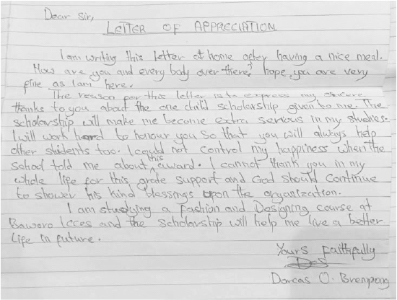 Dear Sir,
LETTER OF APPRECIATION
I am writing this letter at home after having a nice meal.
How are you and every body over there, hope you are very
fine as I am here.
The reason for this letter is to express my sincere
thanks to you about the one child scholarship given to me. The
scholarship will make me become extra serious in my studies.
I will work hard to honour you so that you will always help
other students too. I could not control my happiness when the
school told me about this award. I cannot thank you in my
whole life for this grate support and God should continue
to shower his kind blessings upon the organization.
I am studying a fashion and Designing course at
Bawaro and the scholarship will help me live a better
life in future.
Yours faithfully
Dorcas O.